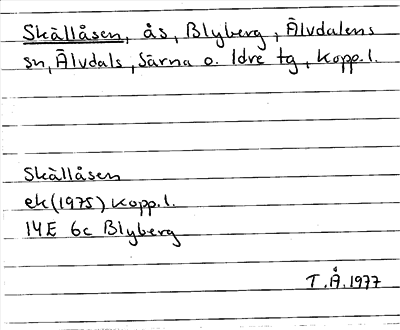 Skällåsen, ås, Blyberg, Älvdalens
sn, Älvdals, Särna o. Idre tg, Kopp.l.
Skällåsen
ek(1975) Kopp.l.
14E 6c Blyberg
T.Å.1977